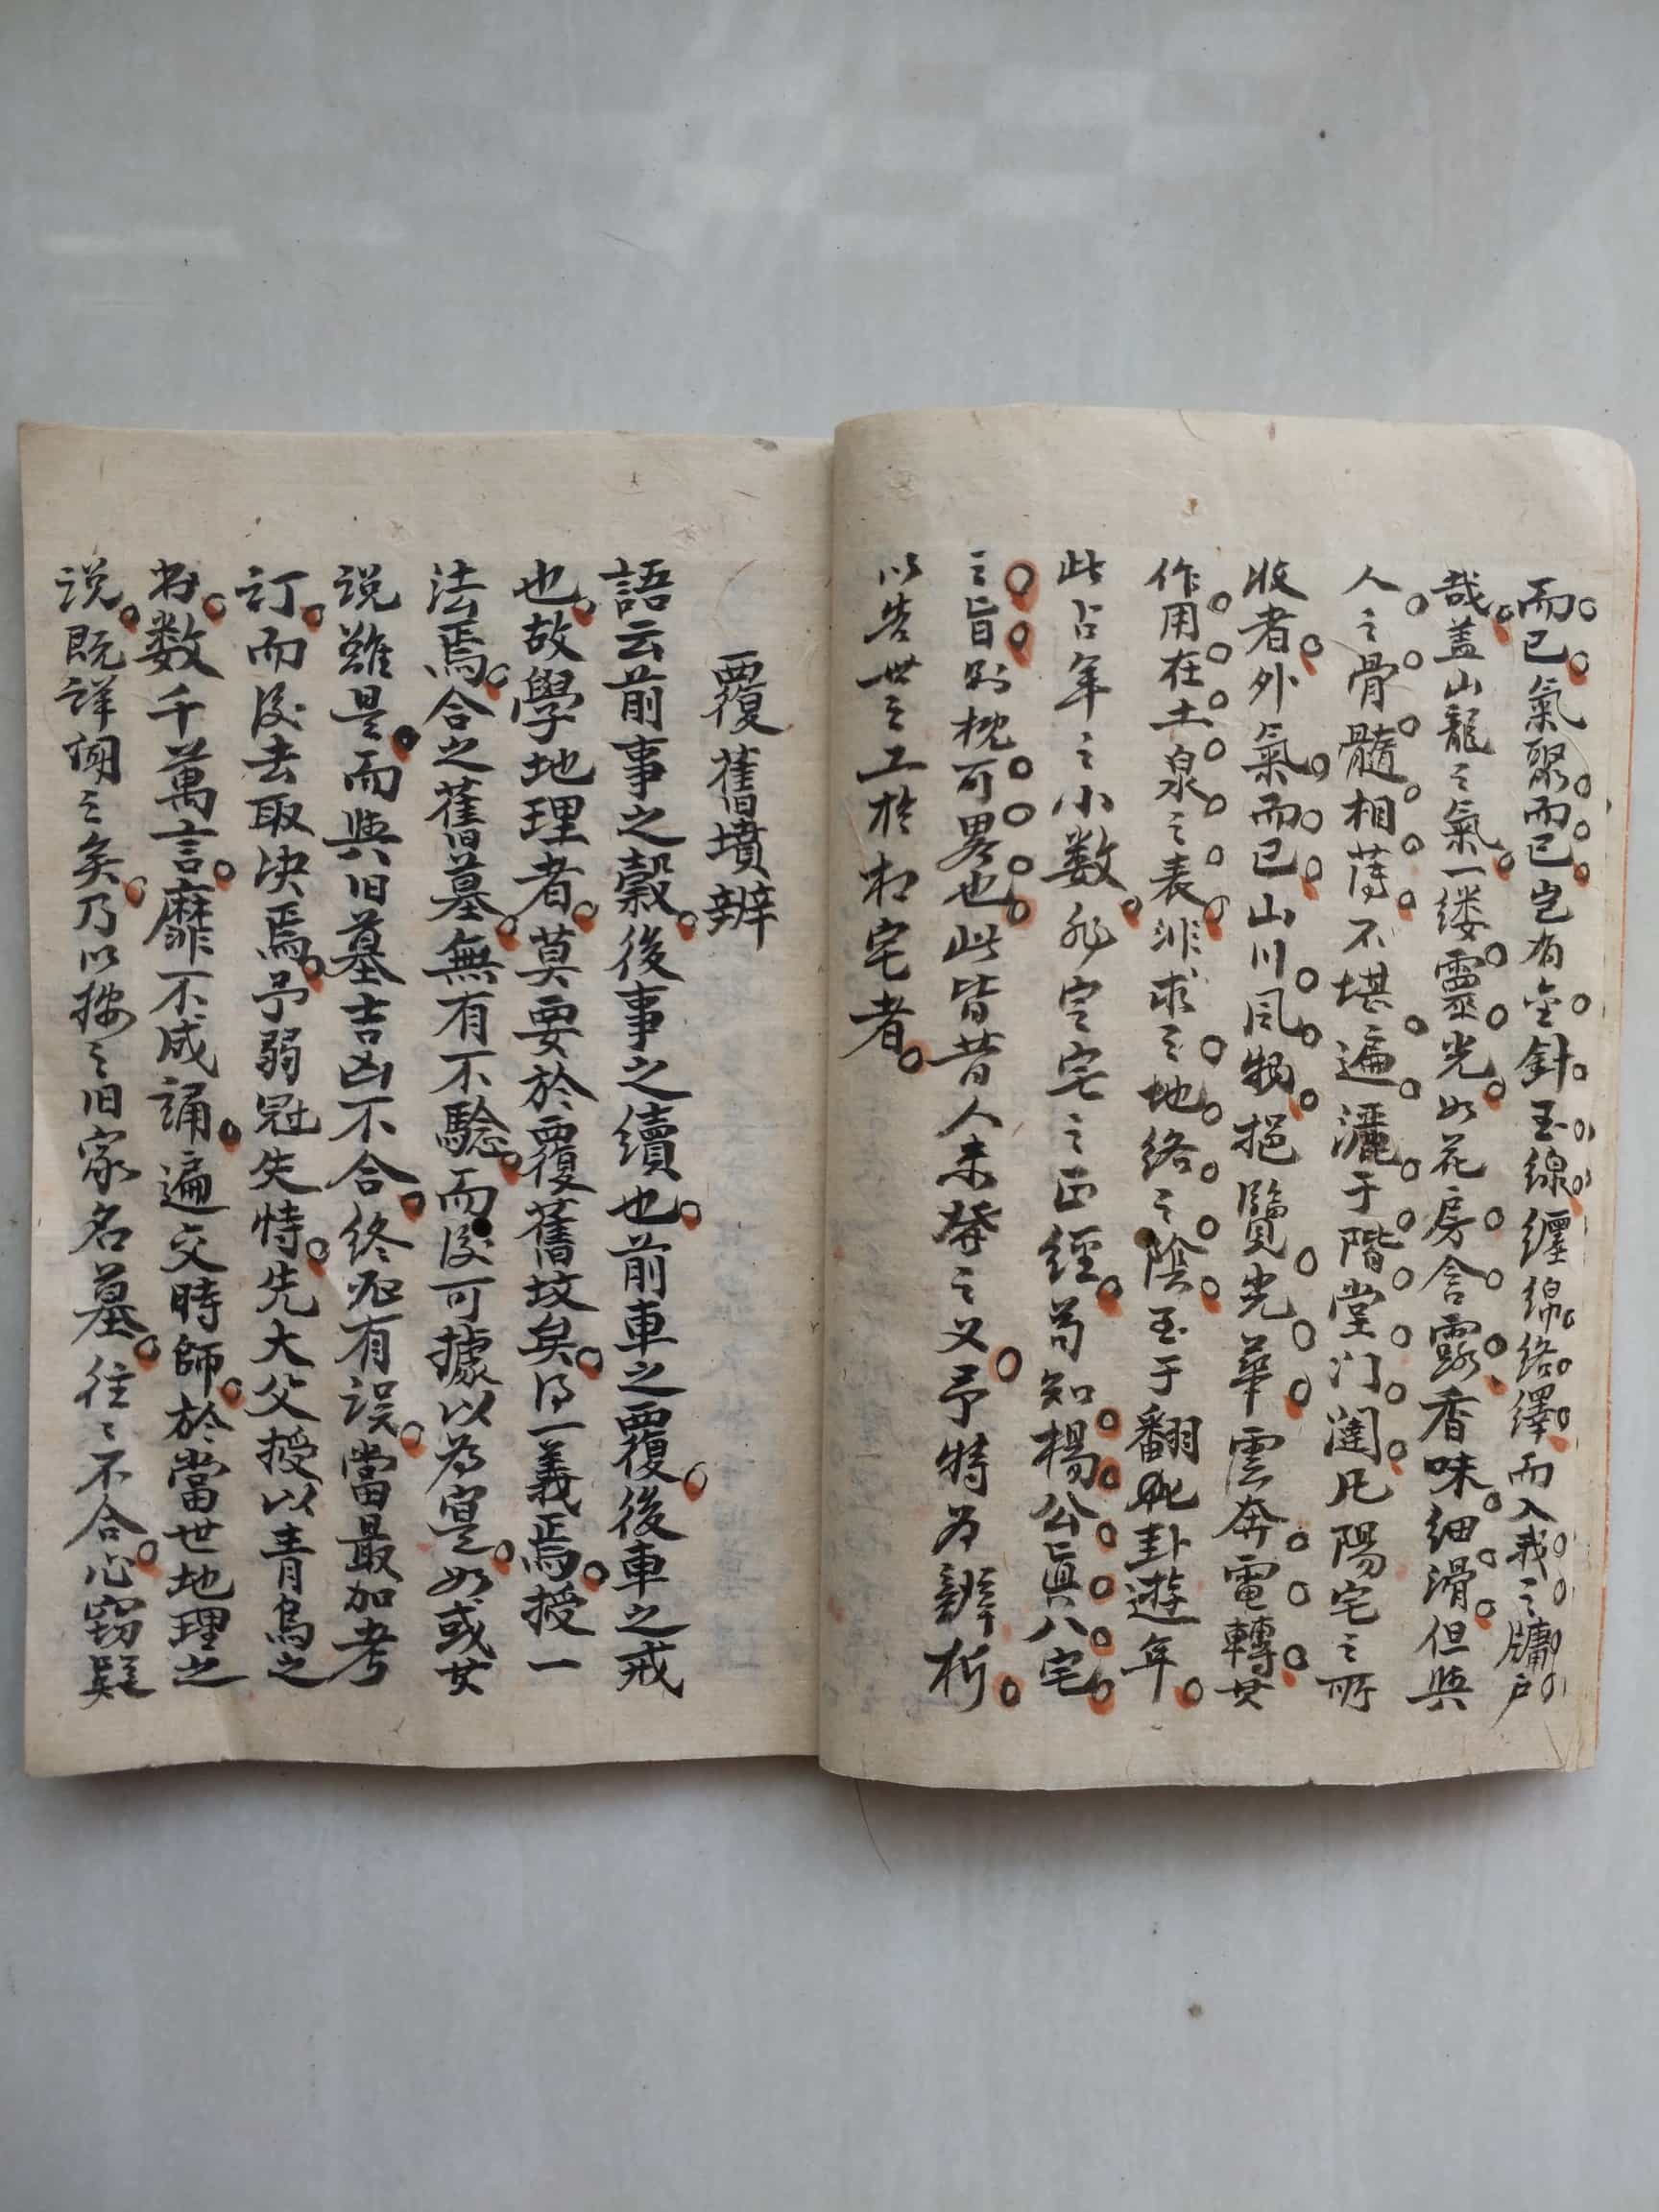 而已氣聚而已豈有金針玉線纏綿絡繹而入我之牗户
哉盖山龍之氣一缕靈光如花房含露香味细滑但與
人之骨髓相薄不堪遍灑于階堂门闥凡陽宅之所
收者外氣而已山川風物挹覽光華雲奔電轉其
作用在土泉之表非求之地络之陰至于翻卦遊年
此占年之小数非定宅之正經苟知楊公眞八宅
之旨則概可畧也此皆昔人未發之义予特为辨析
以告世之工於相宅者
覆舊墳辨
語云前事之轂後事之續也前車之覆後車之戒
也故學地理者莫要於覆舊坟矣得一義焉授一
法焉合之舊墓無有不驗而後可據以为寔如或其
说雖是而與旧墓吉凶不合终必有误當最加考
訂而後去取决焉予弱冠失恃先大父授以青烏之
书数千萬言靡不成誦遍交時師於當世地理之
说既詳闻之矣乃以按之旧家名墓往ミ不合心窃疑